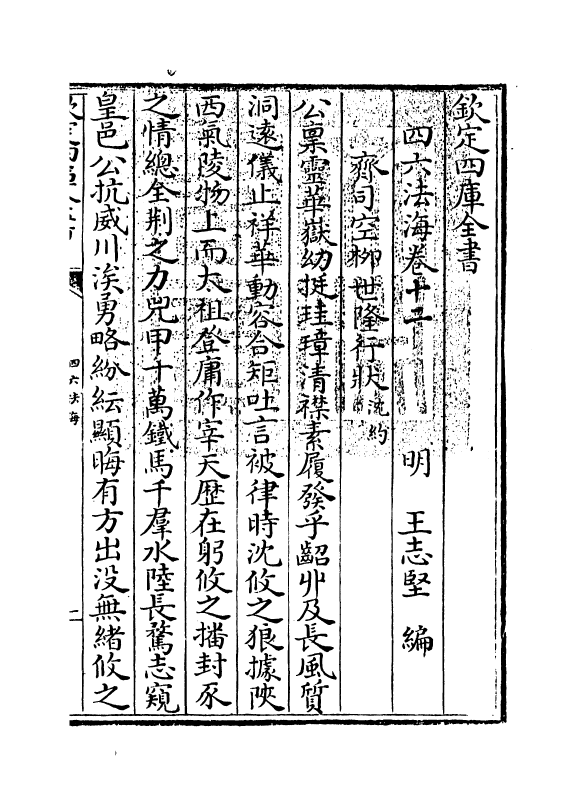 欽定四庫全書
四六法海卷十二
明 王志堅 編
齊司空柳世隆行狀 沈約
公稟靈華嶽幼挺珪璋清襟素履發乎齠丱及長風質
洞遠儀止祥華動容合矩吐言被律時沈攸之狼據陝
西氣陵物上而太祖登庸作宰天歴在躬攸之播封豕
之情總全荆之力兕甲十萬鐵馬千羣水陸長騖志窺
皇邑公抗威川涘勇略紛紜顯晦有方出没無緒攸之
四六法海